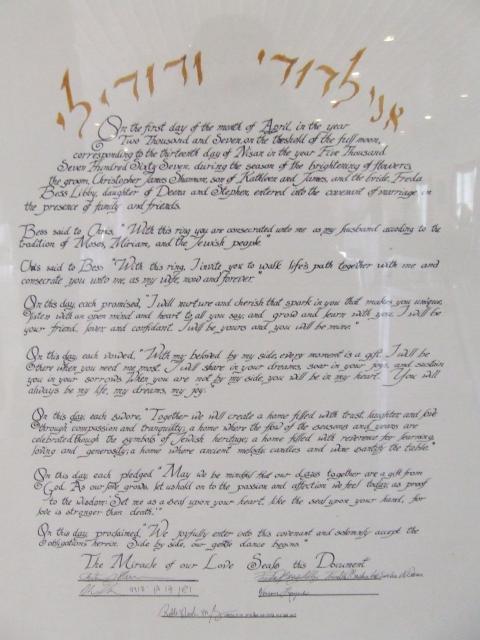 אני לדודי ודודי לי
On the first day of the month of April, in the year
Two Thousand and Seven, on the theshold of the full moon,
corresponding to the thirteenth day of Nisan in the year Five Thousand
Seven Hundred Sixty Seven, during the season of the brightening of flowers,
the groom, Christopher James Shannon, son of Kathleen and James, and the bride, Freda
Bess Libby, daughter of Deena and Stephen, entered into the covenant of marriage in
the presence of family and friends.
Bess said to Chris, "With this ring you are consecrated unto me as my husband accoding to the
tradition of Moses, Miriam, and the Jewish people"
Chris said to Bess "With this ring, I invite you to walk life's path together with me and
consecrate you unto me, as my wife, now and forever."
On this day, each promised, "I will nurture and cherish that spark in you that makes you unique,
listen with an open mind and heart to all you say, and grow and learn with you. I will be
your friend, lover, and confidant. I will be yours and you will be mine."
On this day, each vowed, "With my beloved by my side, every moment is a gift. I will be
there when you need me most. I will share in your dreams, soar in your joys, and sustain
you in your sorrows. When you are not by my side, you will be in my heart. You will
always be my life, my dreams, my joy."
On this day, each swore, "Together we will create a home filled with trust, laughter, and love
through compassion and tranquility; a home where the flow of the seasons and years are
celebrated though the symbols of Jewish heritage; a home filled with reverence for learning,
loving and generosity; a home where ancient melody candles and wine sanctify the table."
On this day each pledged "May we be mindful that our days together are a gift from
God. As our love grows, let us hold on to the passion and affection we feel today, as proof
to the wisdom: Set me as a seal upon your heart, like the seal upon your hand, for
love is stronger than death.'"
On this day proclaimed, "We joyfully enter into this covenant and solemnly accept the
obligations herein. Side by side, our gentle dance begins"
The Miracle of our Love Seals this Document